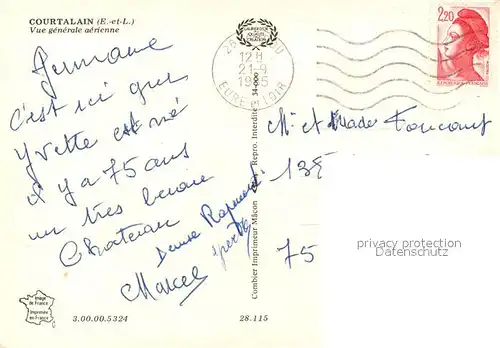 COURTALAIN (E.-et-L.)
Vue générale aérienne
Germaine
c'est ici que
Yvette est né
il y a 75 ans
un très beau
Chateau
Denise Raymond
Yvette
Marcel
12 H
21-9
1985
EURE et LOIR
2,20
REPUBLIQUE FRANÇAISE
Mr et Mader Foucaut
138
75
Combier Imprimeur Mâcon Repro. Interdite 34-000
Image
de France
Imprimée
en France
3.00.00.5324
28.115
privacy protection
www.ansichtskartenversand.com